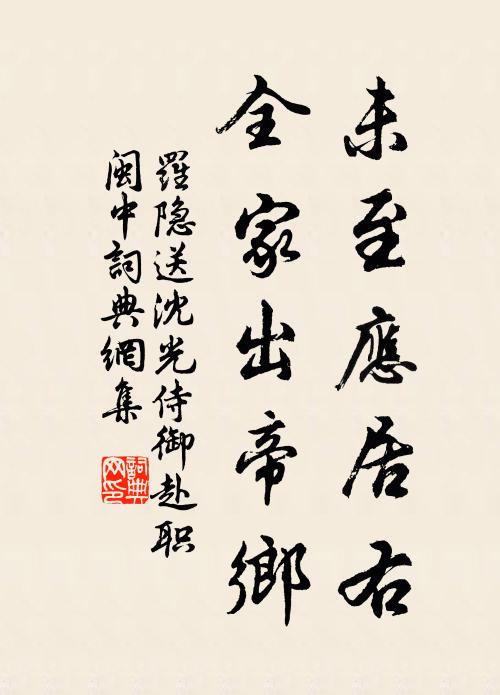 未至應居右
全家出帝鄉
羅隐送沈光侍御赴职
闽中詞典網集
詞典
网印